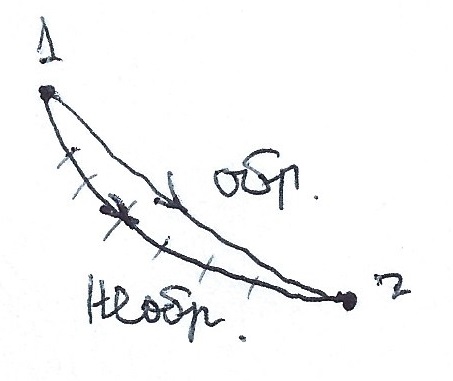 1
обр.
2
Необр.